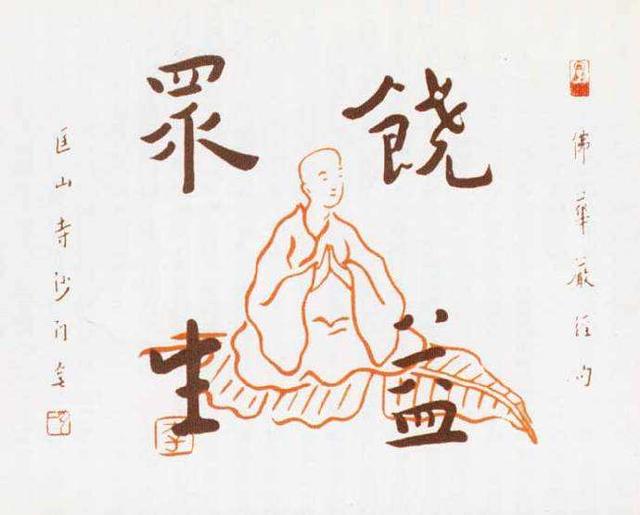 佛華嚴經句
饒益
眾生
匡山寺沙門